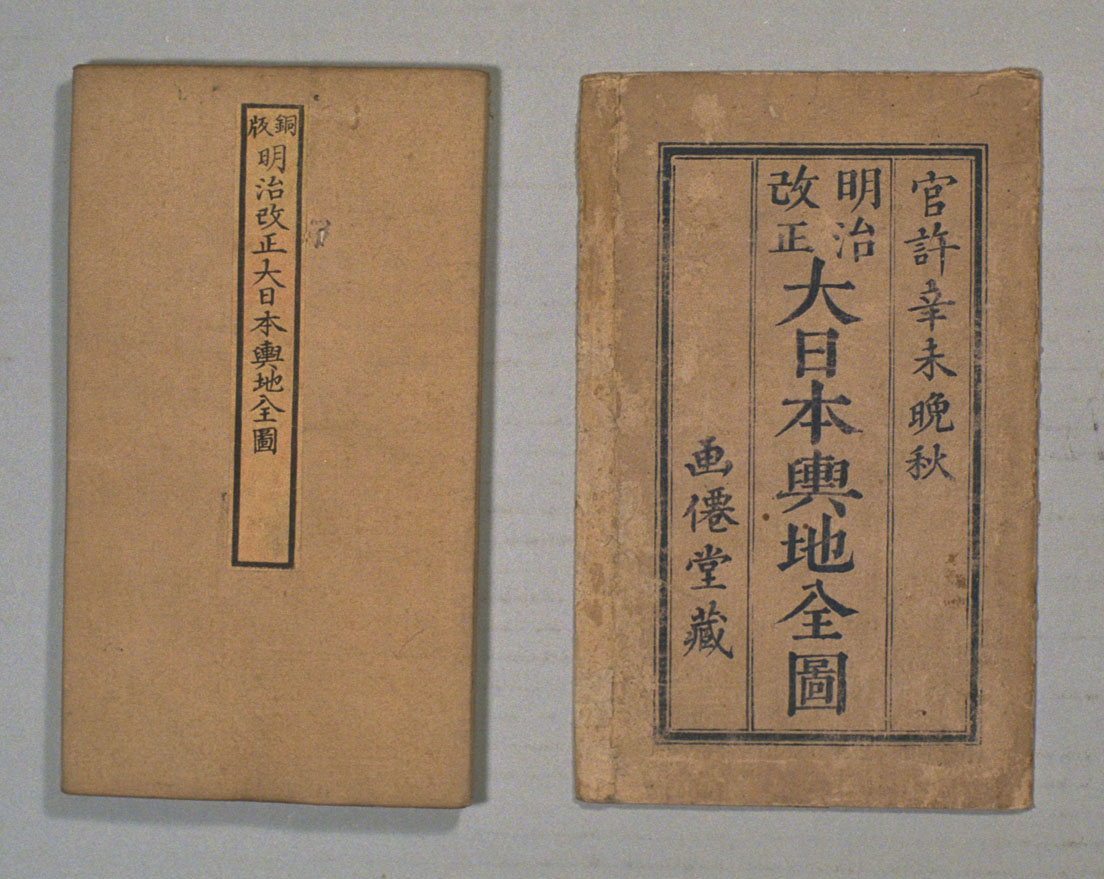 銅版
明治改正大日本輿地全圖
官許辛未晩秋
明治
改正
大日本輿地全圖
画僊堂藏